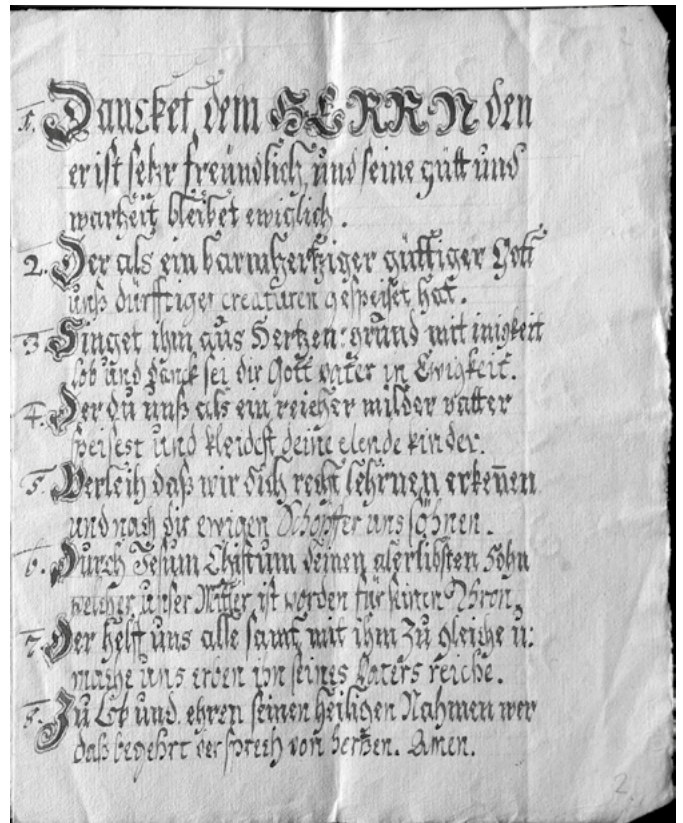 1. Dancket dem HERRN den
er ist sehr freündlich und seine gütt und
warheit bleibet ewiglich.
2. Der als ein barmhertziger güttiger Gott
unß dürfftiger creaturen gespeiset hat.
3. Singet ihm aus Hertzen: grund mit inigkeit
lob und danck sei dir Gott vater in Ewigkeit.
4. Der du unß als ein reicher milder vatter
speisest und kleidest deine elende kinder.
5. Verleih daß wir dich recht lehrnen erkeñen
und nach dir ewigen Schöpffer uns söhnen.
6. Durch Jesum Chistum deinen alerlibsten Sohn
welcher unser Mitler ist worden für seinen Thron.
7. Der helff uns alle samt mit ihm zu gleiche u:
mache uns erben ihn seines Vaters reiche.
8. Zu Lob und ehren seinen heiligen Nahmen wer
daß begehrt der sprech von hertzen. Amen.
2.